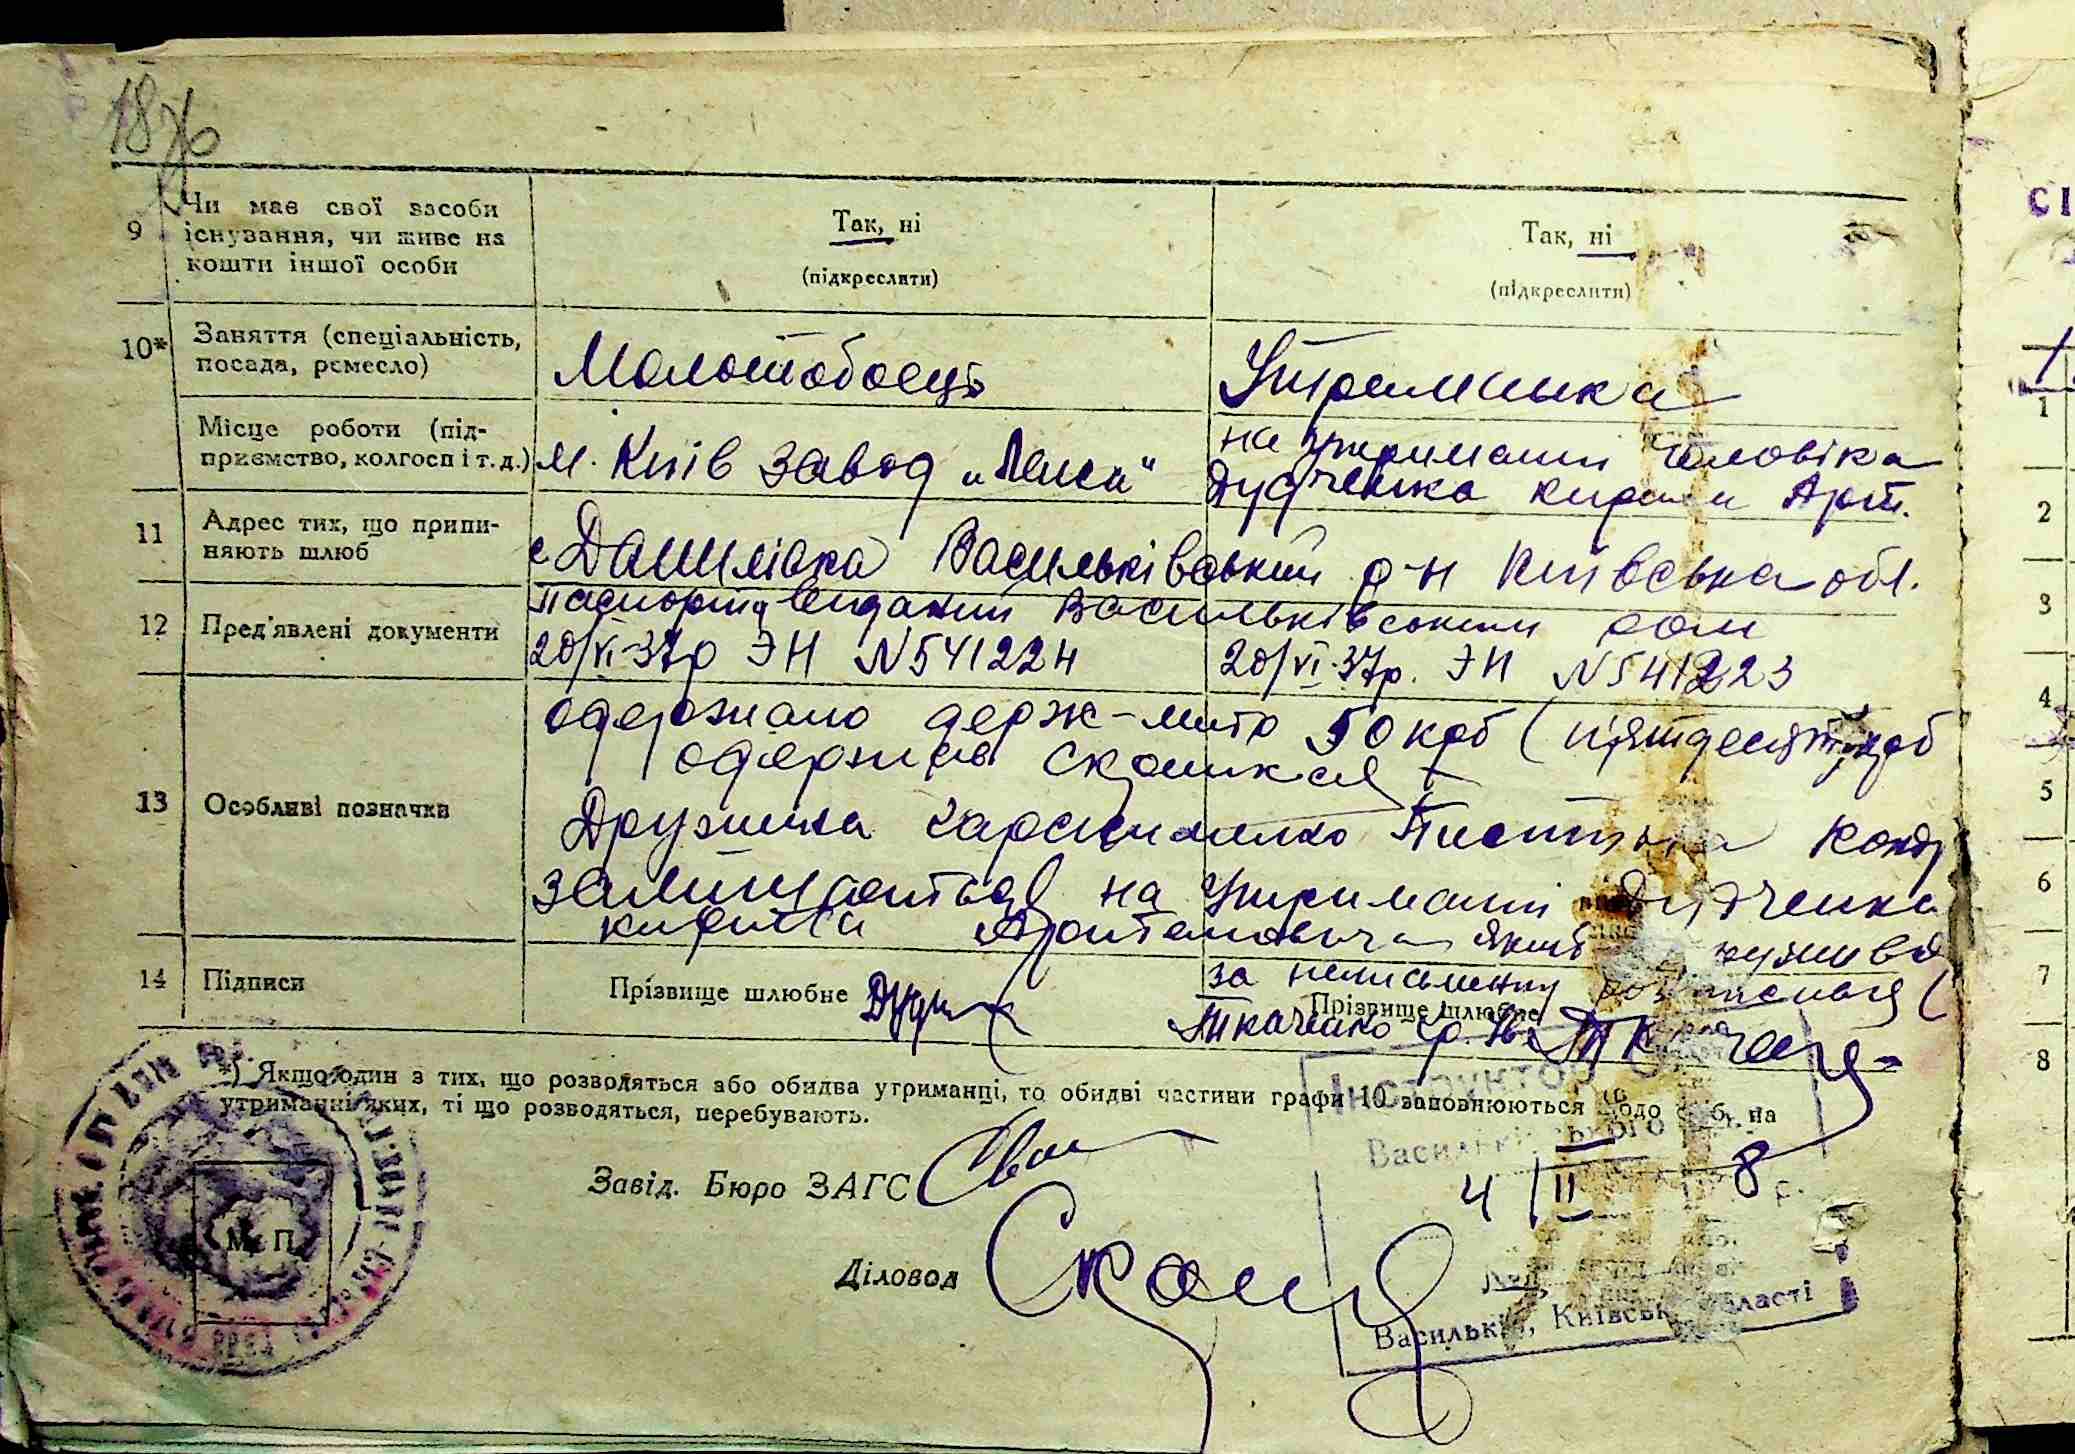 187б
9 Чи має свої засоби існування, чи живе на кошти іншої особи
Так, ні
(підкреслити)
Так, ні
(підкреслити)
10* Заняття (спеціальність, посада, ремесло)
Молотобоець
Утриманка
Місце роботи (підприємство, колгосп і т. д.)
м. Київ завод „Ленси"
на утриманні чоловіка
Дудченка Кирили Арт.
11 Адрес тих, що припиняють шлюб
с Данилівка Васильківський р-н Київська обл.
12 Пред'явлені документи
Паспорта видании Васильківським ром
20/VI-37р ЭН N541224
20/VI-37р. ЭН N541223
13 Особливі позначки
одержано держ-мито 50 крб (п'ятдесят крб
одержав
Дружина Тистина Конд
залишаеться на утриманні Дудченка
Кирила Артемовича який
14 Підписи
Прізвище шлюбне Дудч
за неписьменну росписался (
Прізвище шлюбне
Ткаченко гр. Ткаченко
*) Якщо один з тих, що розводяться або обидва утриманці, то обидві частини графи 10 заповнюються щодо осіб, на
утриманні яких, ті що розводяться, перебувають.
Інструктор
Васильківського
Завід. Бюро ЗАГС
4/II 8 р.
Діловод
М. П.
Васильків, Київської області
СІ
1
2
3
4
5
6
7
8